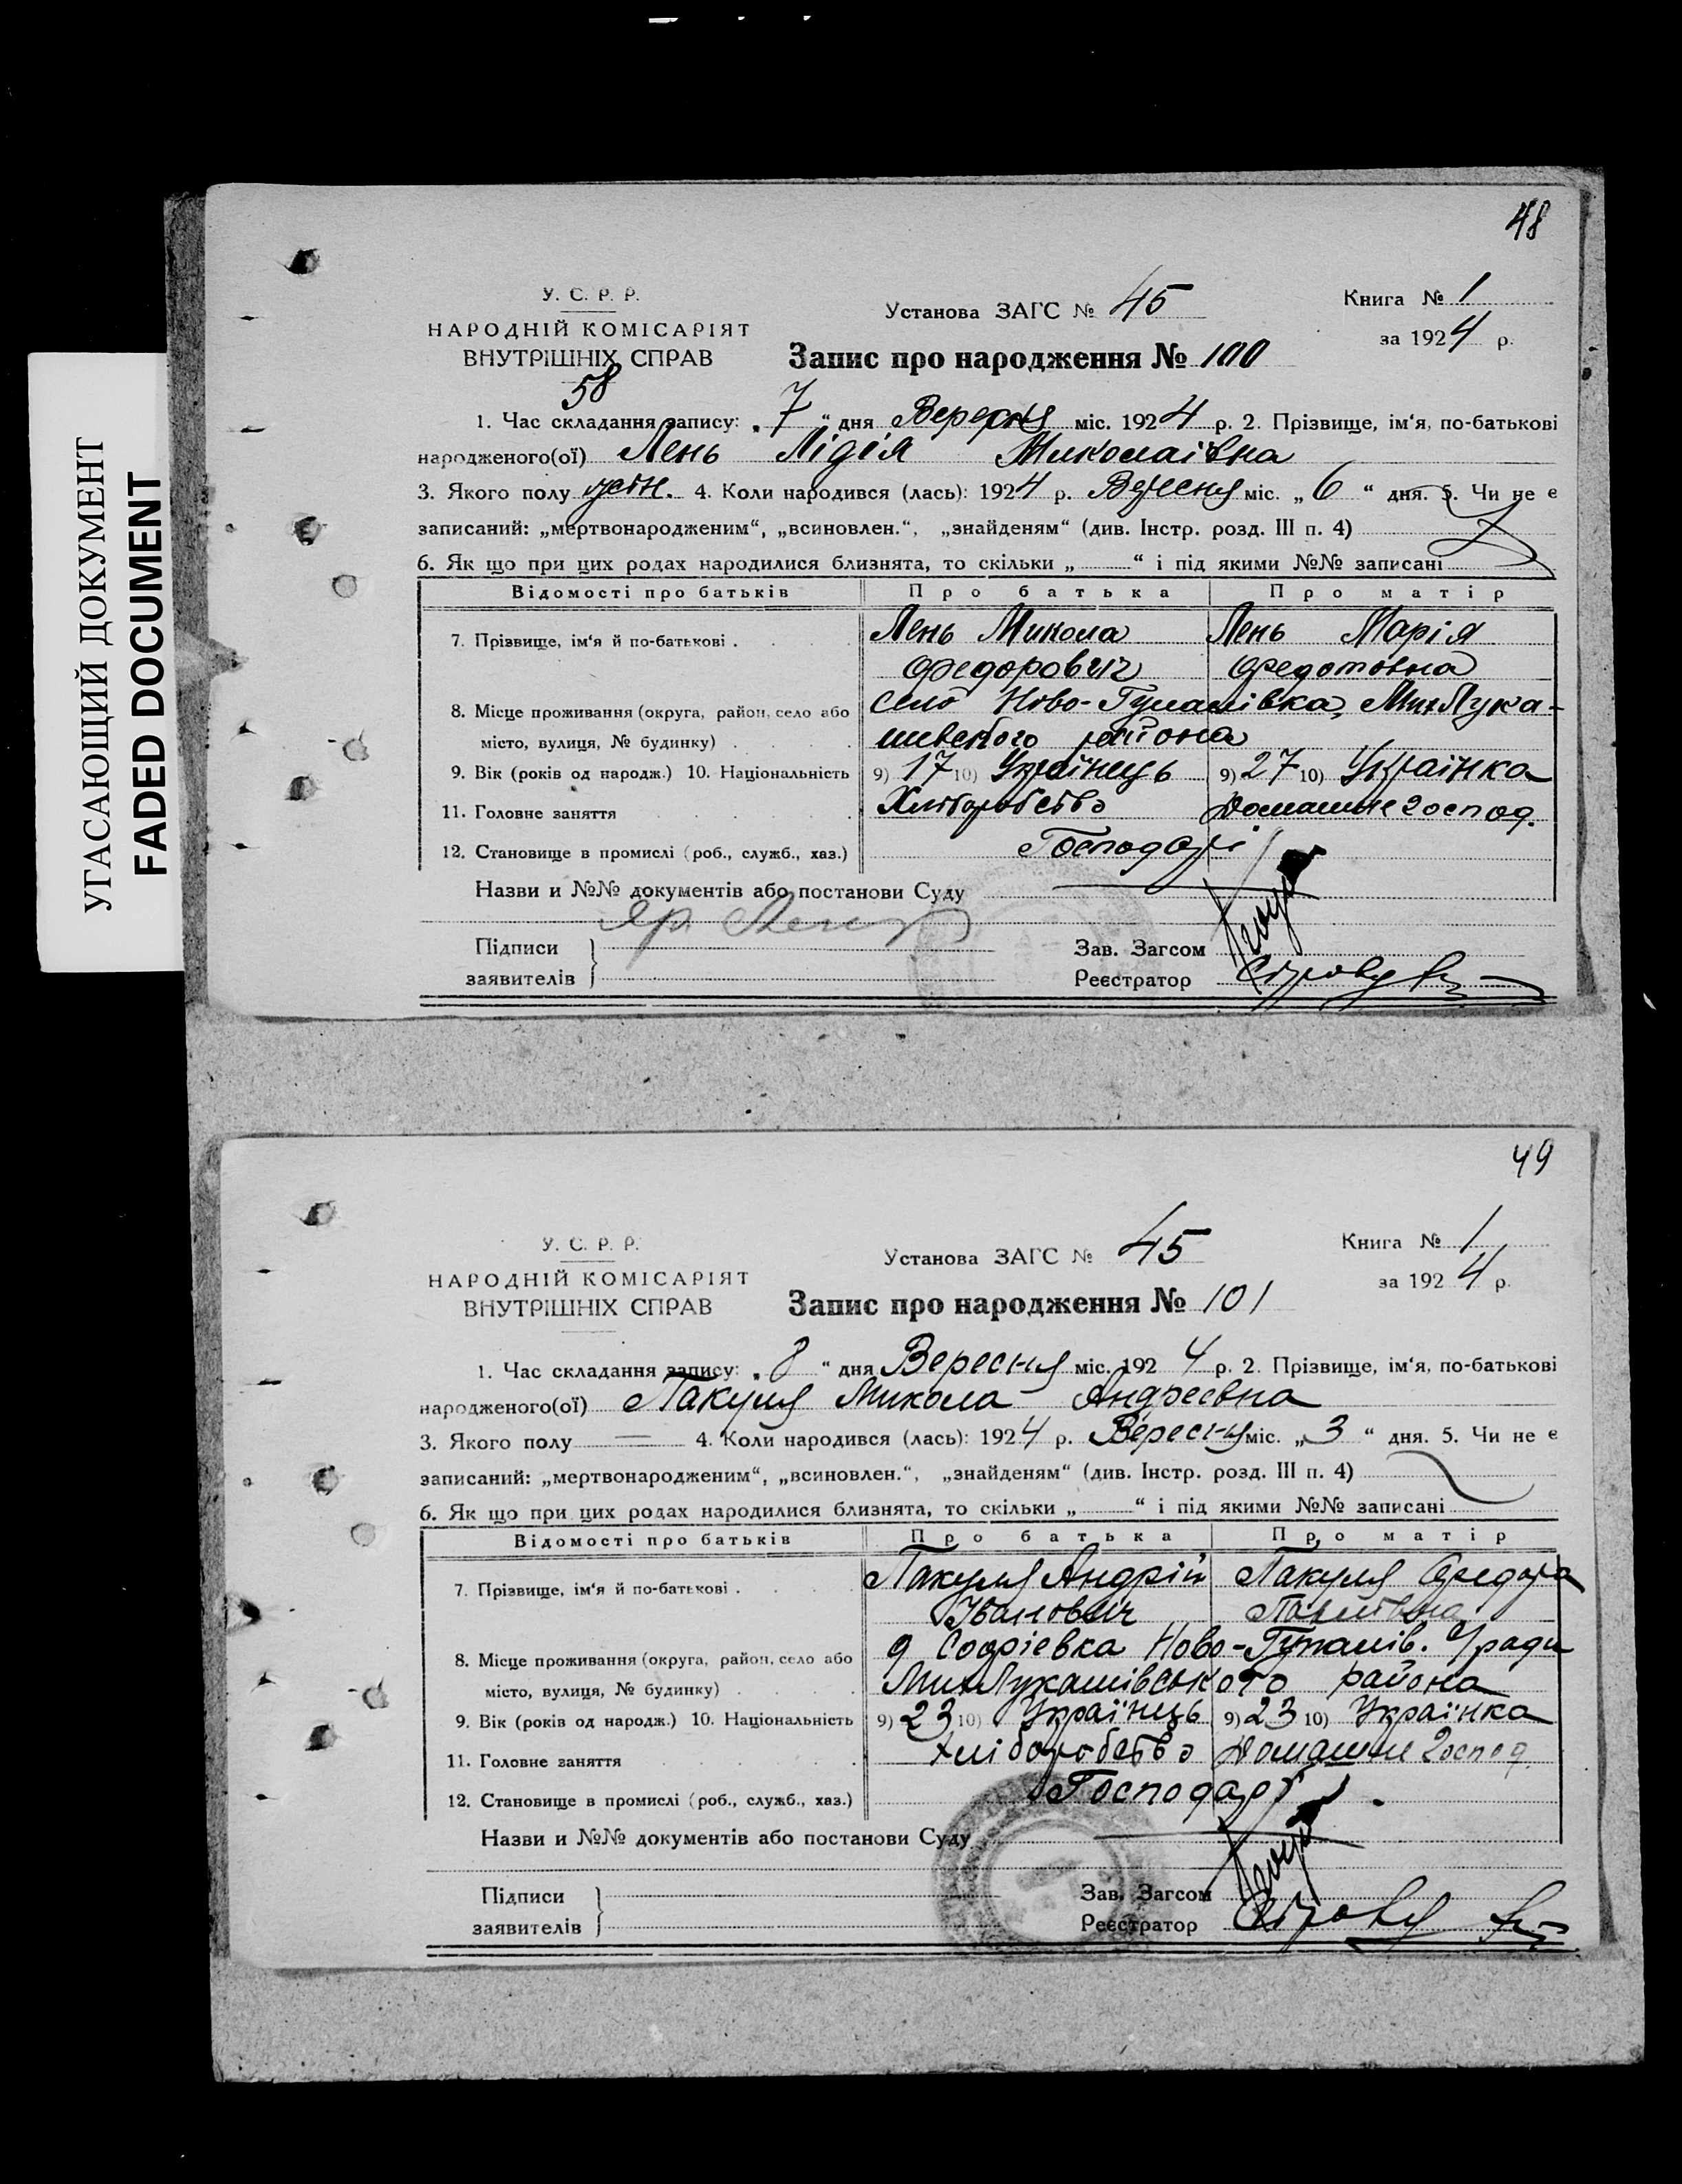 УГАСАЮЩИЙ ДОКУМЕНТ
FADED DOCUMENT
48
У. С. Р. Р.
НАРОДНІЙ КОМІСАРІЯТ
ВНУТРІШНІХ СПРАВ
58
Установа ЗАГС № 45
Книга № 1
за 1924 р.
Запис про народження № 100
1. Час складання запису: „7“ дня Вересня міс. 1924 р. 2. Прізвище, ім‘я, по-батькові
народженого(ої) Лень Лідія Миколаівна
3. Якого полу жін. 4. Коли народився (лась): 1924 р. Вересня міс. „6“ дня. 5. Чи не є
записаний: „мертвонародженим“, „всиновлен.“, „знайденям“ (див. Інстр. розд. III п. 4)
6. Як що при цих родах народилися близнята, то скільки „ “ і під якими №№ записані
Відомості про батьків Про батька Про матір
7. Прізвище, ім‘я й по-батькові . Лень Микола Лень Марія
Федорович Федотовна
8. Місце проживання (округа, район, село або село Ново-Гупалівка, Мих Лука-
місто, вулиця, № будинку) . шивського района
9. Вік (років од народж.) 10. Національність 9) 17 10) Українець 9) 27 10) Українка
11. Головне заняття Хліборобство Домашне господ.
12. Становище в промислі (роб., служб., хаз.) Господарі
Назви и №№ документів або постанови Суду
Підписи
заявителів
Зав. Загсом
Реєстратор
49
У. С. Р. Р.
НАРОДНІЙ КОМІСАРІЯТ
ВНУТРІШНІХ СПРАВ
Установа ЗАГС № 45
Книга № 1
за 1924 р.
Запис про народження № 101
1. Час складання запису: „8“ дня Вересня міс. 1924 р. 2. Прізвище, ім‘я, по-батькові
народженого(ої) Пакуля Микола Андреевна
3. Якого полу — 4. Коли народився (лась): 1924 р. Вересня міс. „3“ дня. 5. Чи не є
записаний: „мертвонародженим“, „всиновлен.“, „знайденям“ (див. Інстр. розд. III п. 4)
6. Як що при цих родах народилися близнята, то скільки „ “ і під якими №№ записані
Відомості про батьків Про батька Про матір
7. Прізвище, ім‘я й по-батькові . Пакуля Андрій Пакуля Федора
Іванович Павлівна
8. Місце проживання (округа, район, село або д Софіевка Ново-Гупалів. У ради
місто, вулиця, № будинку) . Мих Лукашівського района
9. Вік (років од народж.) 10. Національність 9) 23 10) Українець 9) 23 10) Українка
11. Головне заняття хліборобство Домашне господ.
12. Становище в промислі (роб., служб., хаз.) Господарі
Назви и №№ документів або постанови Суду
Підписи
заявителів
Зав. Загсом
Реєстратор